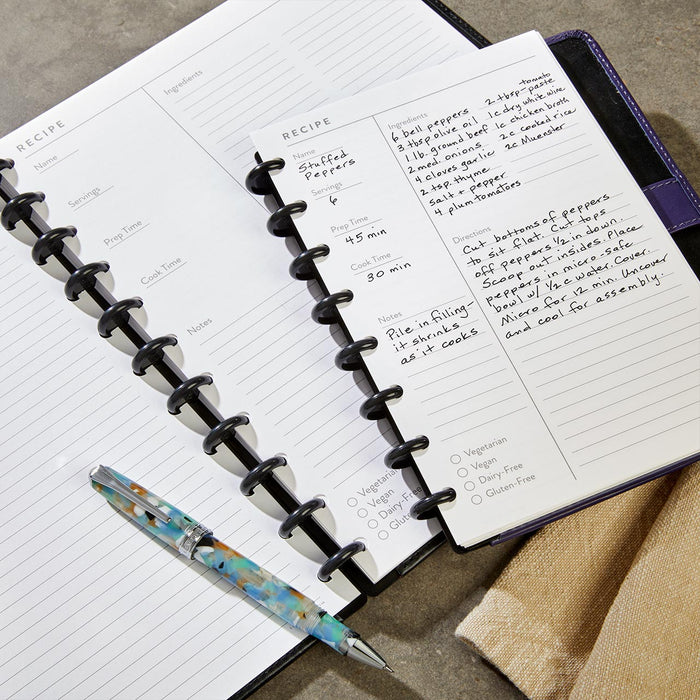 RECIPE
Name
Servings
Prep Time
Cook Time
Notes
Ingredients
Vegetarian
Vegan
Dairy-Free
RECIPE
Name
Stuffed
Peppers
Servings
6
Prep Time
45 min
Cook Time
30 min
Notes
Pile in filling-
it shrinks
as it cooks
Vegetarian
Vegan
Dairy-Free
Gluten-Free
Ingredients
6 bell peppers
3 tbsp olive oil
1 lb. ground beef
2 med. onions
4 cloves garlic
2 tsp. thyme
salt + pepper
4 plum tomatoes
2 tbsp tomato
paste
1c dry white wine
1c chicken broth
2c cooked rice
2c Muenster
Directions
Cut bottoms of peppers
to sit flat. Cut tops
off peppers 1/2 in down.
Scoop out insides. Place
peppers in micro-safe
bowl w/ 1/2 c water. Cover.
Micro for 12 min. Uncover
and cool for assembly.